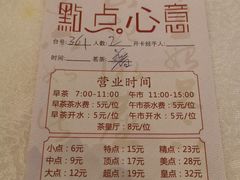 點点心意
台号: 361 人数: 2 开卡经手人:
时间: 茗茶:
营业时间
早茶 7:00-11:00 午市 11:00-15:00
早茶茶水费: 5元/位 午市茶水费: 5元/位
早茶开水: 5元/位 午市开水: 5元/位
茶量厅: 8元/位
小点: 6元 特点: 15元 精点: 23元
中点: 9元 顶点: 17元 美点: 28元
大点: 12元 超点: 19元 皇点: 32元